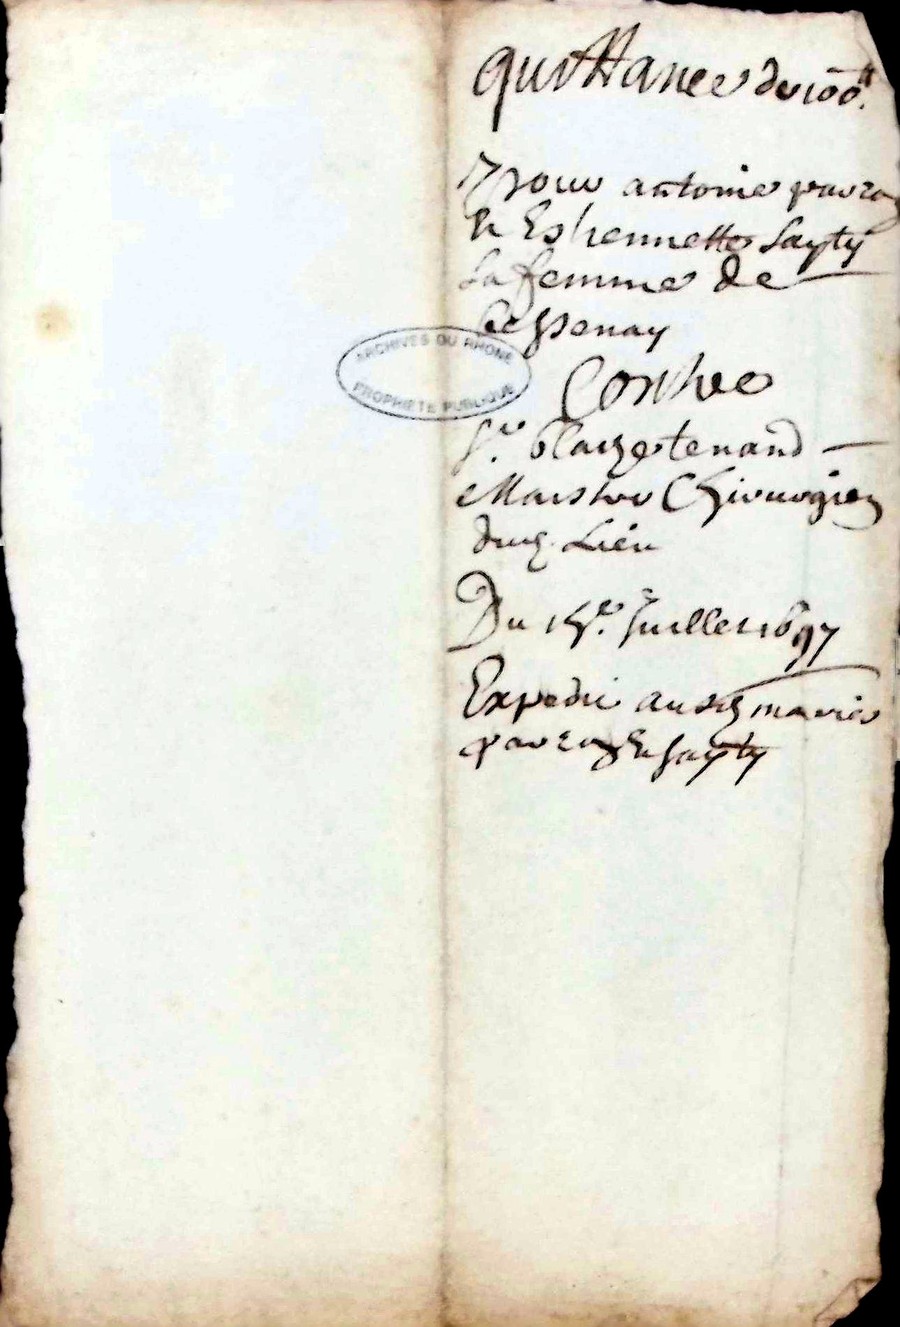 quittance de 100.ᵗᵗ
Pour antoine pavzay
Et Estiennette Sayty
Sa femme de
Cessenay
ARCHIVES DU RHONE
PROPRIÉTÉ PUBLIQUE
Contre
Sʳ. blaize tenand
Maistre Chirurgien
dud. Lieu
Du 15ᵉ. Juillet 1697
Expedié ausd. mariés
Sayty